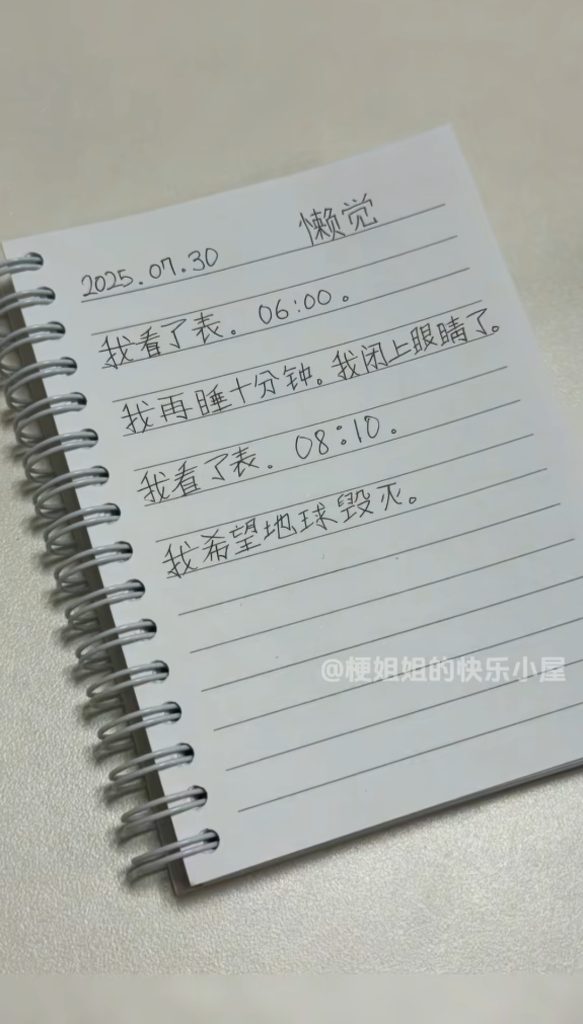 2025.07.30 懒觉
我看了表。06:00。
我再睡十分钟。我闭上眼睛了。
我看了表。08:10.
我希望地球毁灭。
@梗姐姐的快乐小屋